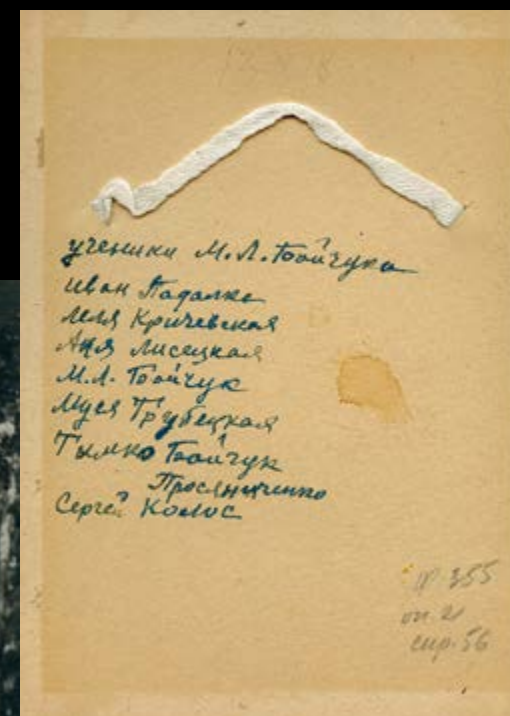 ученики М.Л. Бойчука
Иван Падалка
Леля Кричевская
Аня Лисецкая
М.Л. Бойчук
Муся Трубецкая
Тымко Бойчук
Просяниченко
Сергей Колос
ф. 355
оп. 2
спр. 56